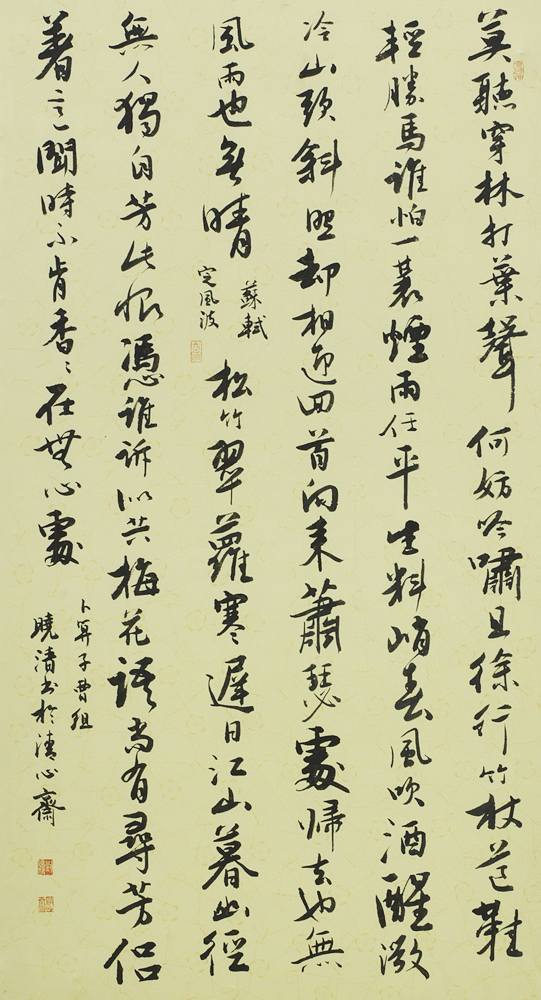 莫聽穿林打葉聲何妨吟嘯且徐行竹杖芒鞋
輕勝馬誰怕一蓑煙雨任平生料峭春風吹酒醒微
冷山頭斜照却相迎回首向來蕭瑟處歸去也無
風雨也無晴
蘇軾
定風波
松竹翠蘿寒遲日江山暮幽徑
無人獨自芳此恨憑誰訴似共梅花語尚有尋芳侶
著意聞時不肯香〻在無心處
卜筭子曹組
曉清書於清心齋